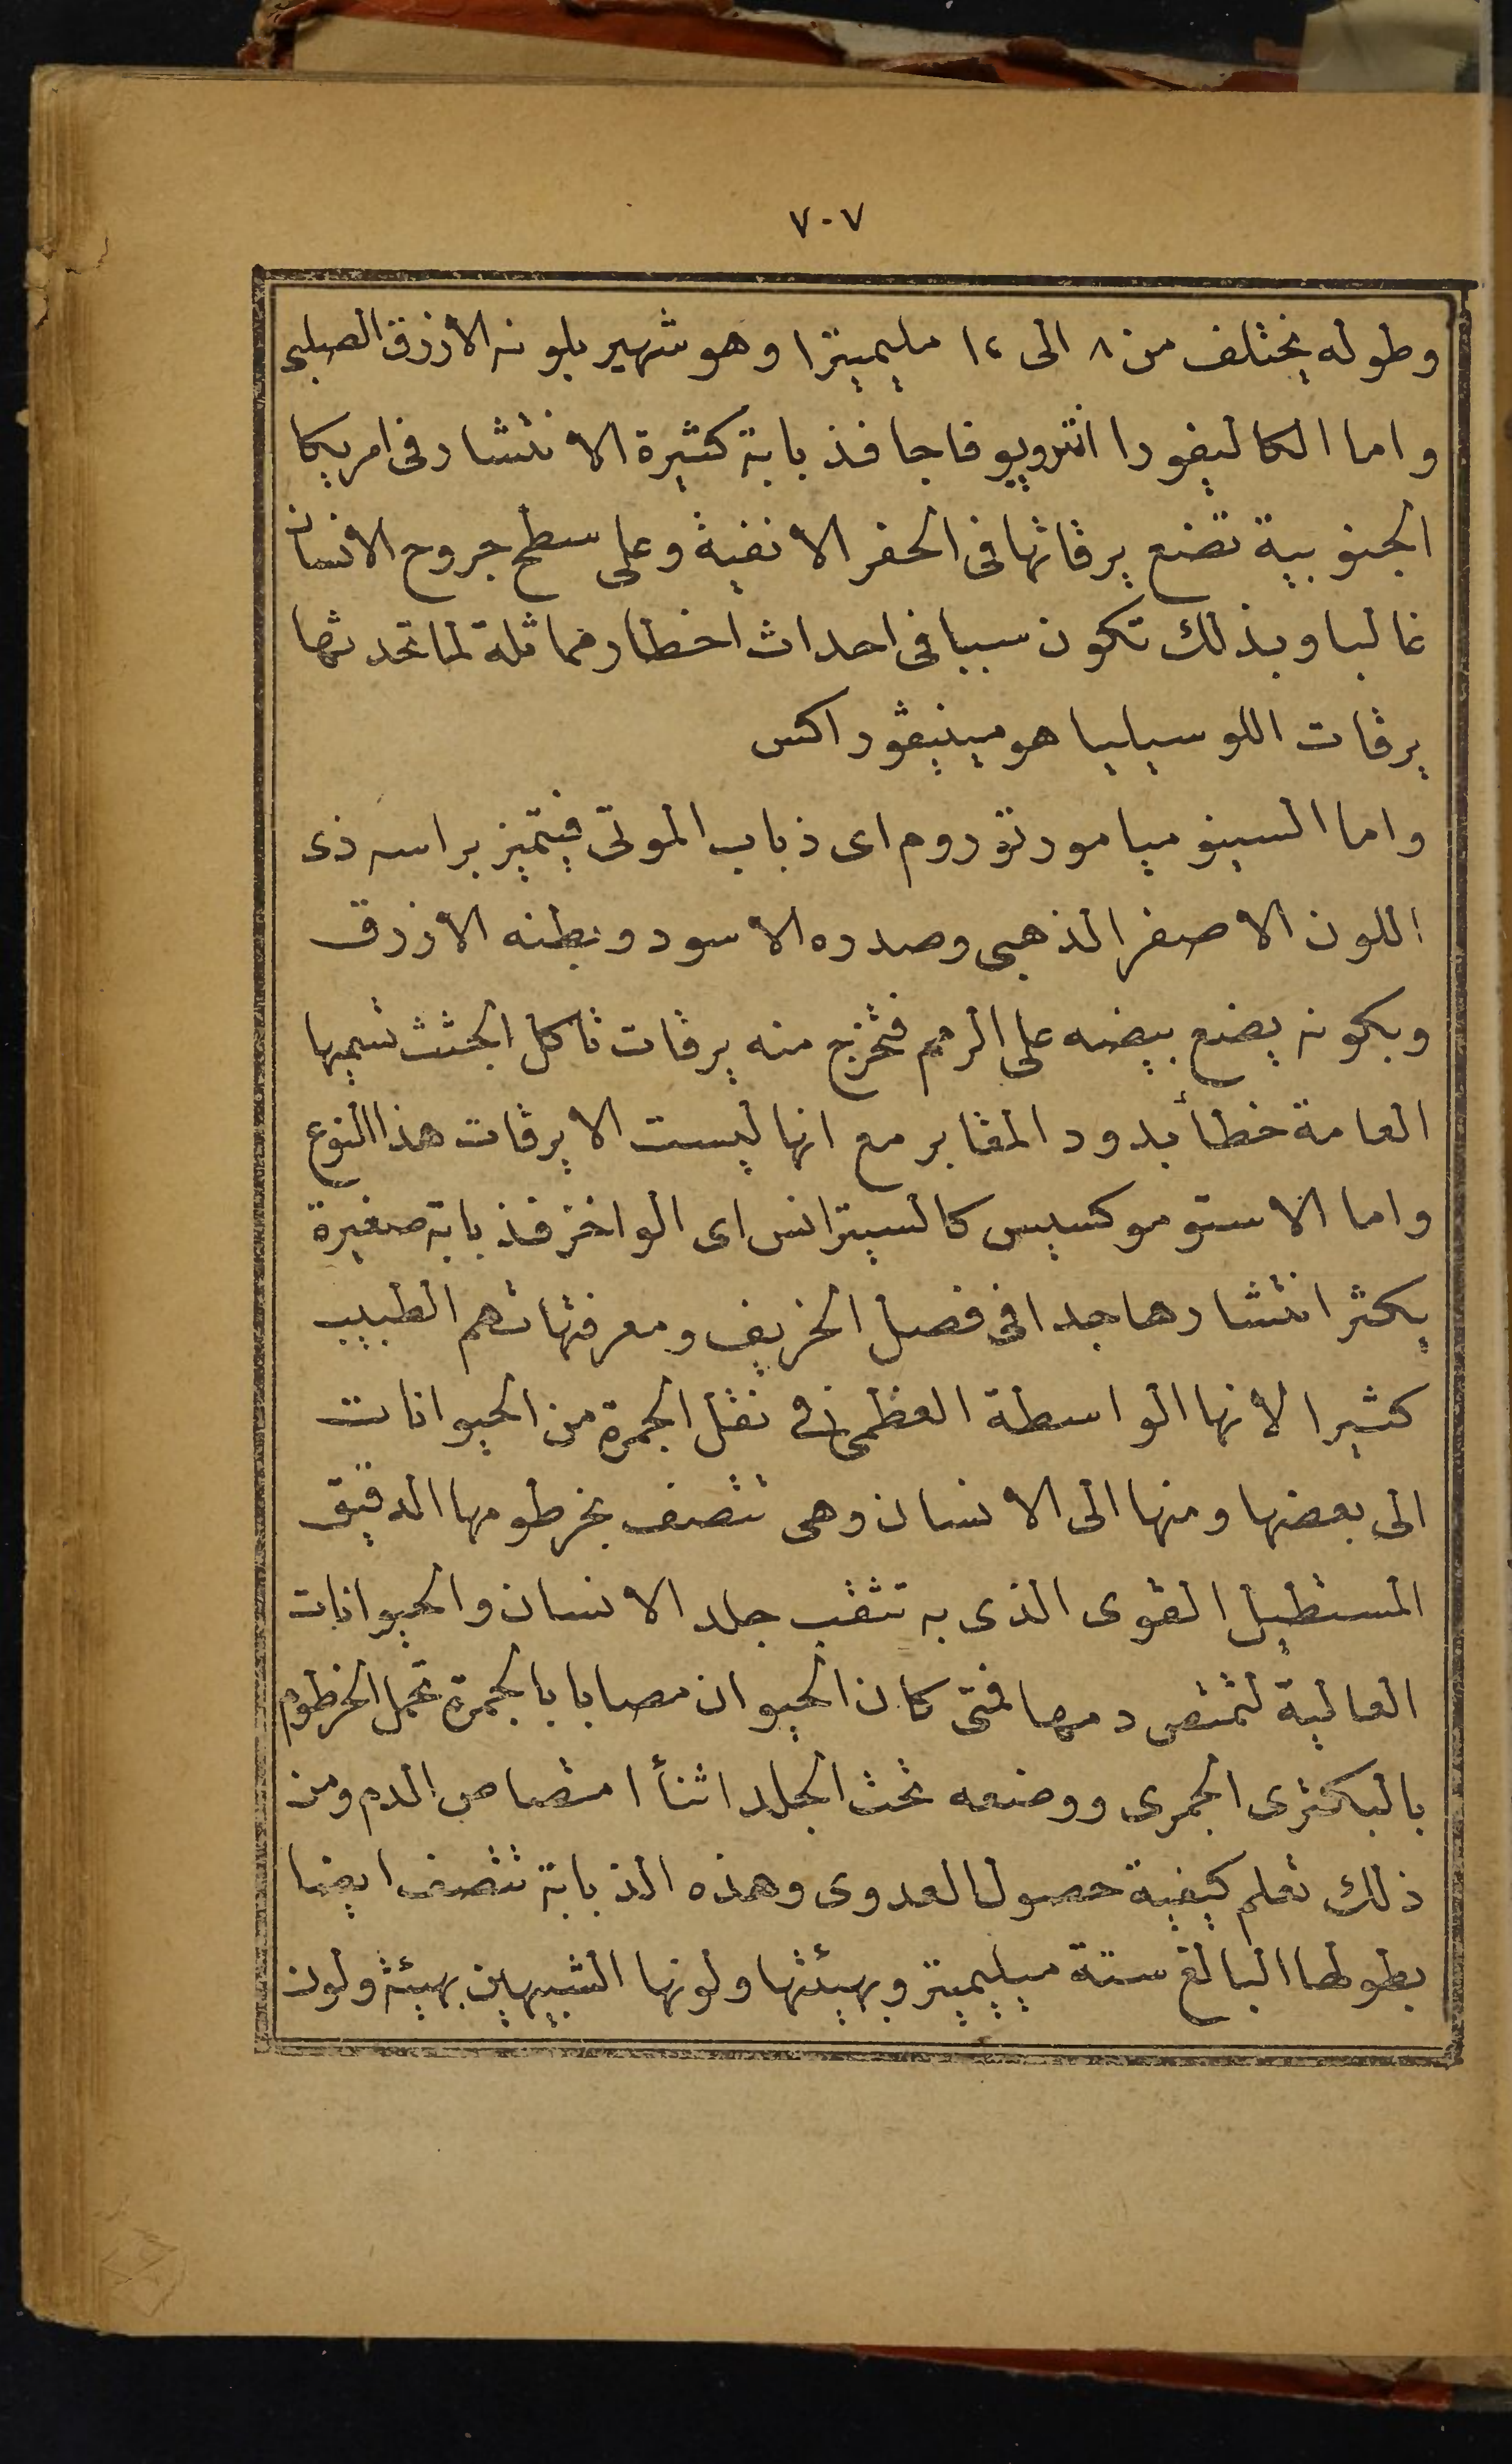 ٧٠٧
وطوله يختلف من ٨ الى ١٢ مليمترا وهو شهير بلونه الازرق الصلبى
واما الكاليفورا انتروپوفاجا فذبابة كثيرة الانتشار فى امريكا
الجنوبية تضع يرقاتها فى الحفر الانفية وعلى سطح جروح الانسان
غالبا وبذلك تكون سببا فى احداث اخطار مماثلة لما تحدثها
يرقات اللوسيليا هومينيڤوراكس
واما السينوميا مورتوروم اى ذباب الموتى فيتميز براسه ذى
اللون الاصفر الذهبى وصدره الاسود وبطنه الازرق
وبكونه يضع بيضه على الرمم فتخرج منه يرقات تاكل الجثث تسميها
العامة خطأ بدود المقابر مع انها ليست الا يرقات هذا النوع
واما الاستوموكسيس كالسيترانس اى الواخز فذبابة صغيرة
يكثر انتشارها جدا فى فصل الخريف ومعرفتها تهم الطبيب
كثيرا لانها الواسطة العظمى فى نقل الجمرة من الحيوانات
الى بعضها ومنها الى الانسان وهى تتصف بخرطومها الدقيق
المستطيل القوى الذى به تثقب جلد الانسان والحيوانات
العالية لتمتص دمها فمتى كان الحيوان مصابا بالجمرة تحمل الخرطوم
بالبكترى الجمرى ووضعه تحت الجلد اثنأ امتصاص الدم ومن
ذلك تعلم كيفية حصول العدوى وهذه الذبابة تتصف ايضا
بطولها البالغ ستة ميليمتر وبهيئتها ولونها الشبيهين بهيئة ولون